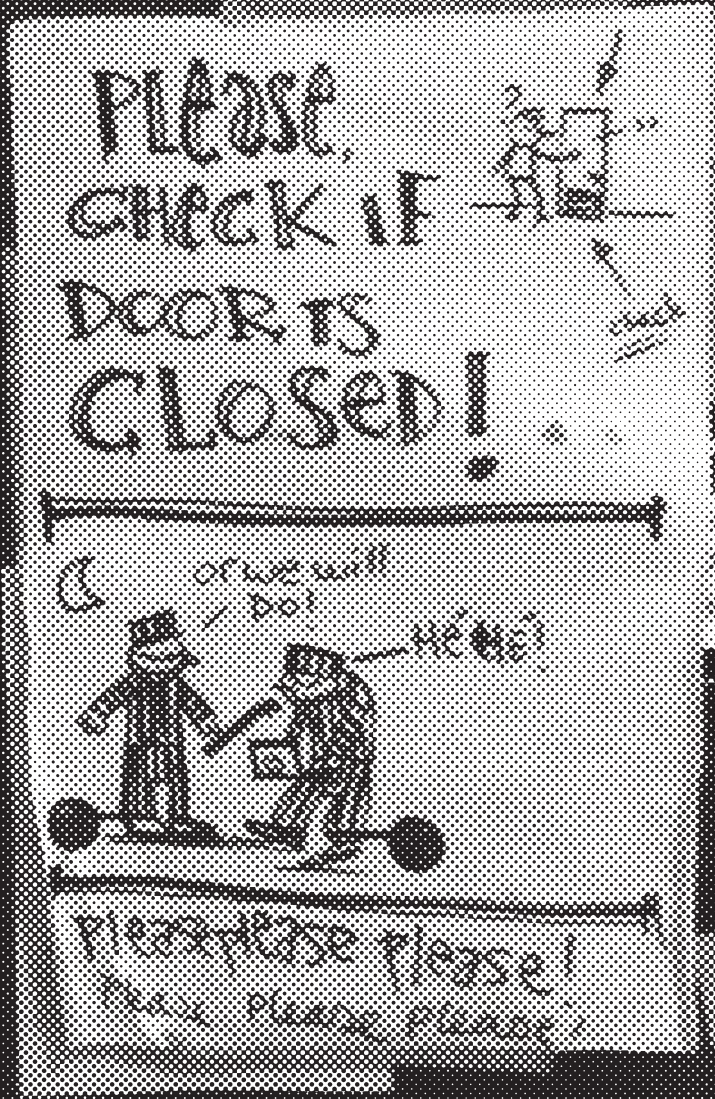 PLease,
CHeCK IF
DOOR IS
CLOSeD!
check
or we will
Do!
HÉ HÉ!
Please please please!
Please please please!